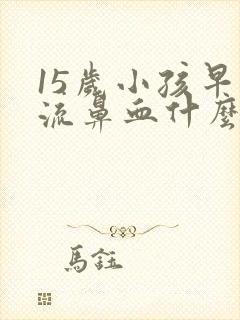 15歲小孩早
流鼻血什麼
馬鈺